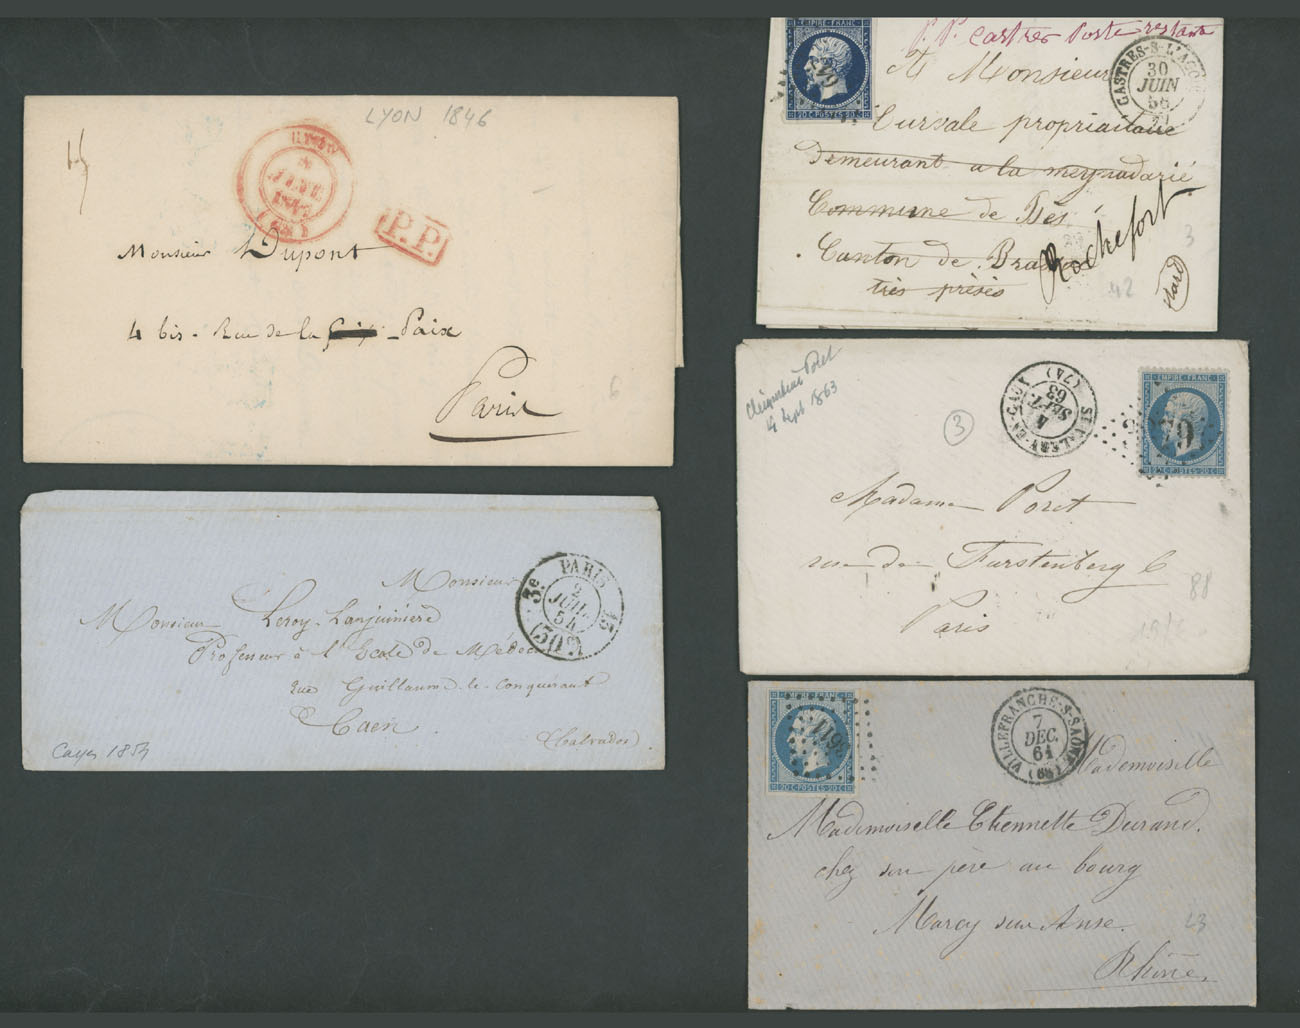 LYON 1846
LYON
JUIL
1847
(68)
P.P.
Monsieur Dupont
4 bis - Rue de la Paix
Paris
6
PARIS
3e
2
JUIL.
54
15
(60)
Monsieur
Monsieur Leroy-Lanjuinière
Professeur à l'Ecole de Médecine
Rue Guillaume-le-Conquérant
Caen
Calvados
1854
EMPIRE FRANC
20 C POSTES 20 C
P.P. Castres Poste restante
A Monsieur
Cursale propriaitaire
Demeurant a la meynadarié
Commune de
Canton de
très présés
Rochefort
CASTRES-S-L'AGOUT
30
JUIN
56
3
42
14 Sept 1863
3
ST VALERY-EN-CAUX
4
SEPT.
63
(74)
EMPIRE FRANC
20 C POSTES 20 C
Madame Poret
rue de Furstenberg 6
Paris
88
EMPIRE FRANC
20 C POSTES 20 C
VILLEFRANCHE-S-SAONE
7
DEC.
61
(68)
Mademoiselle
Mademoiselle Etiennette Durand.
chez son père au bourg
Marcy sur Anse.
Rhône.
23